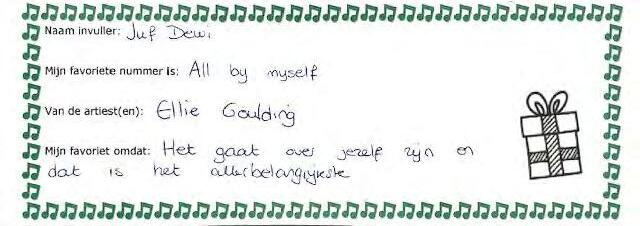 Naam invuller: Juf Dewi
Mijn favoriete nummer is: All by myself
Van de artiest(en): Ellie Goulding
Mijn favoriet omdat: Het gaat over jezelf zijn en
dat is het allerbelangrijkste